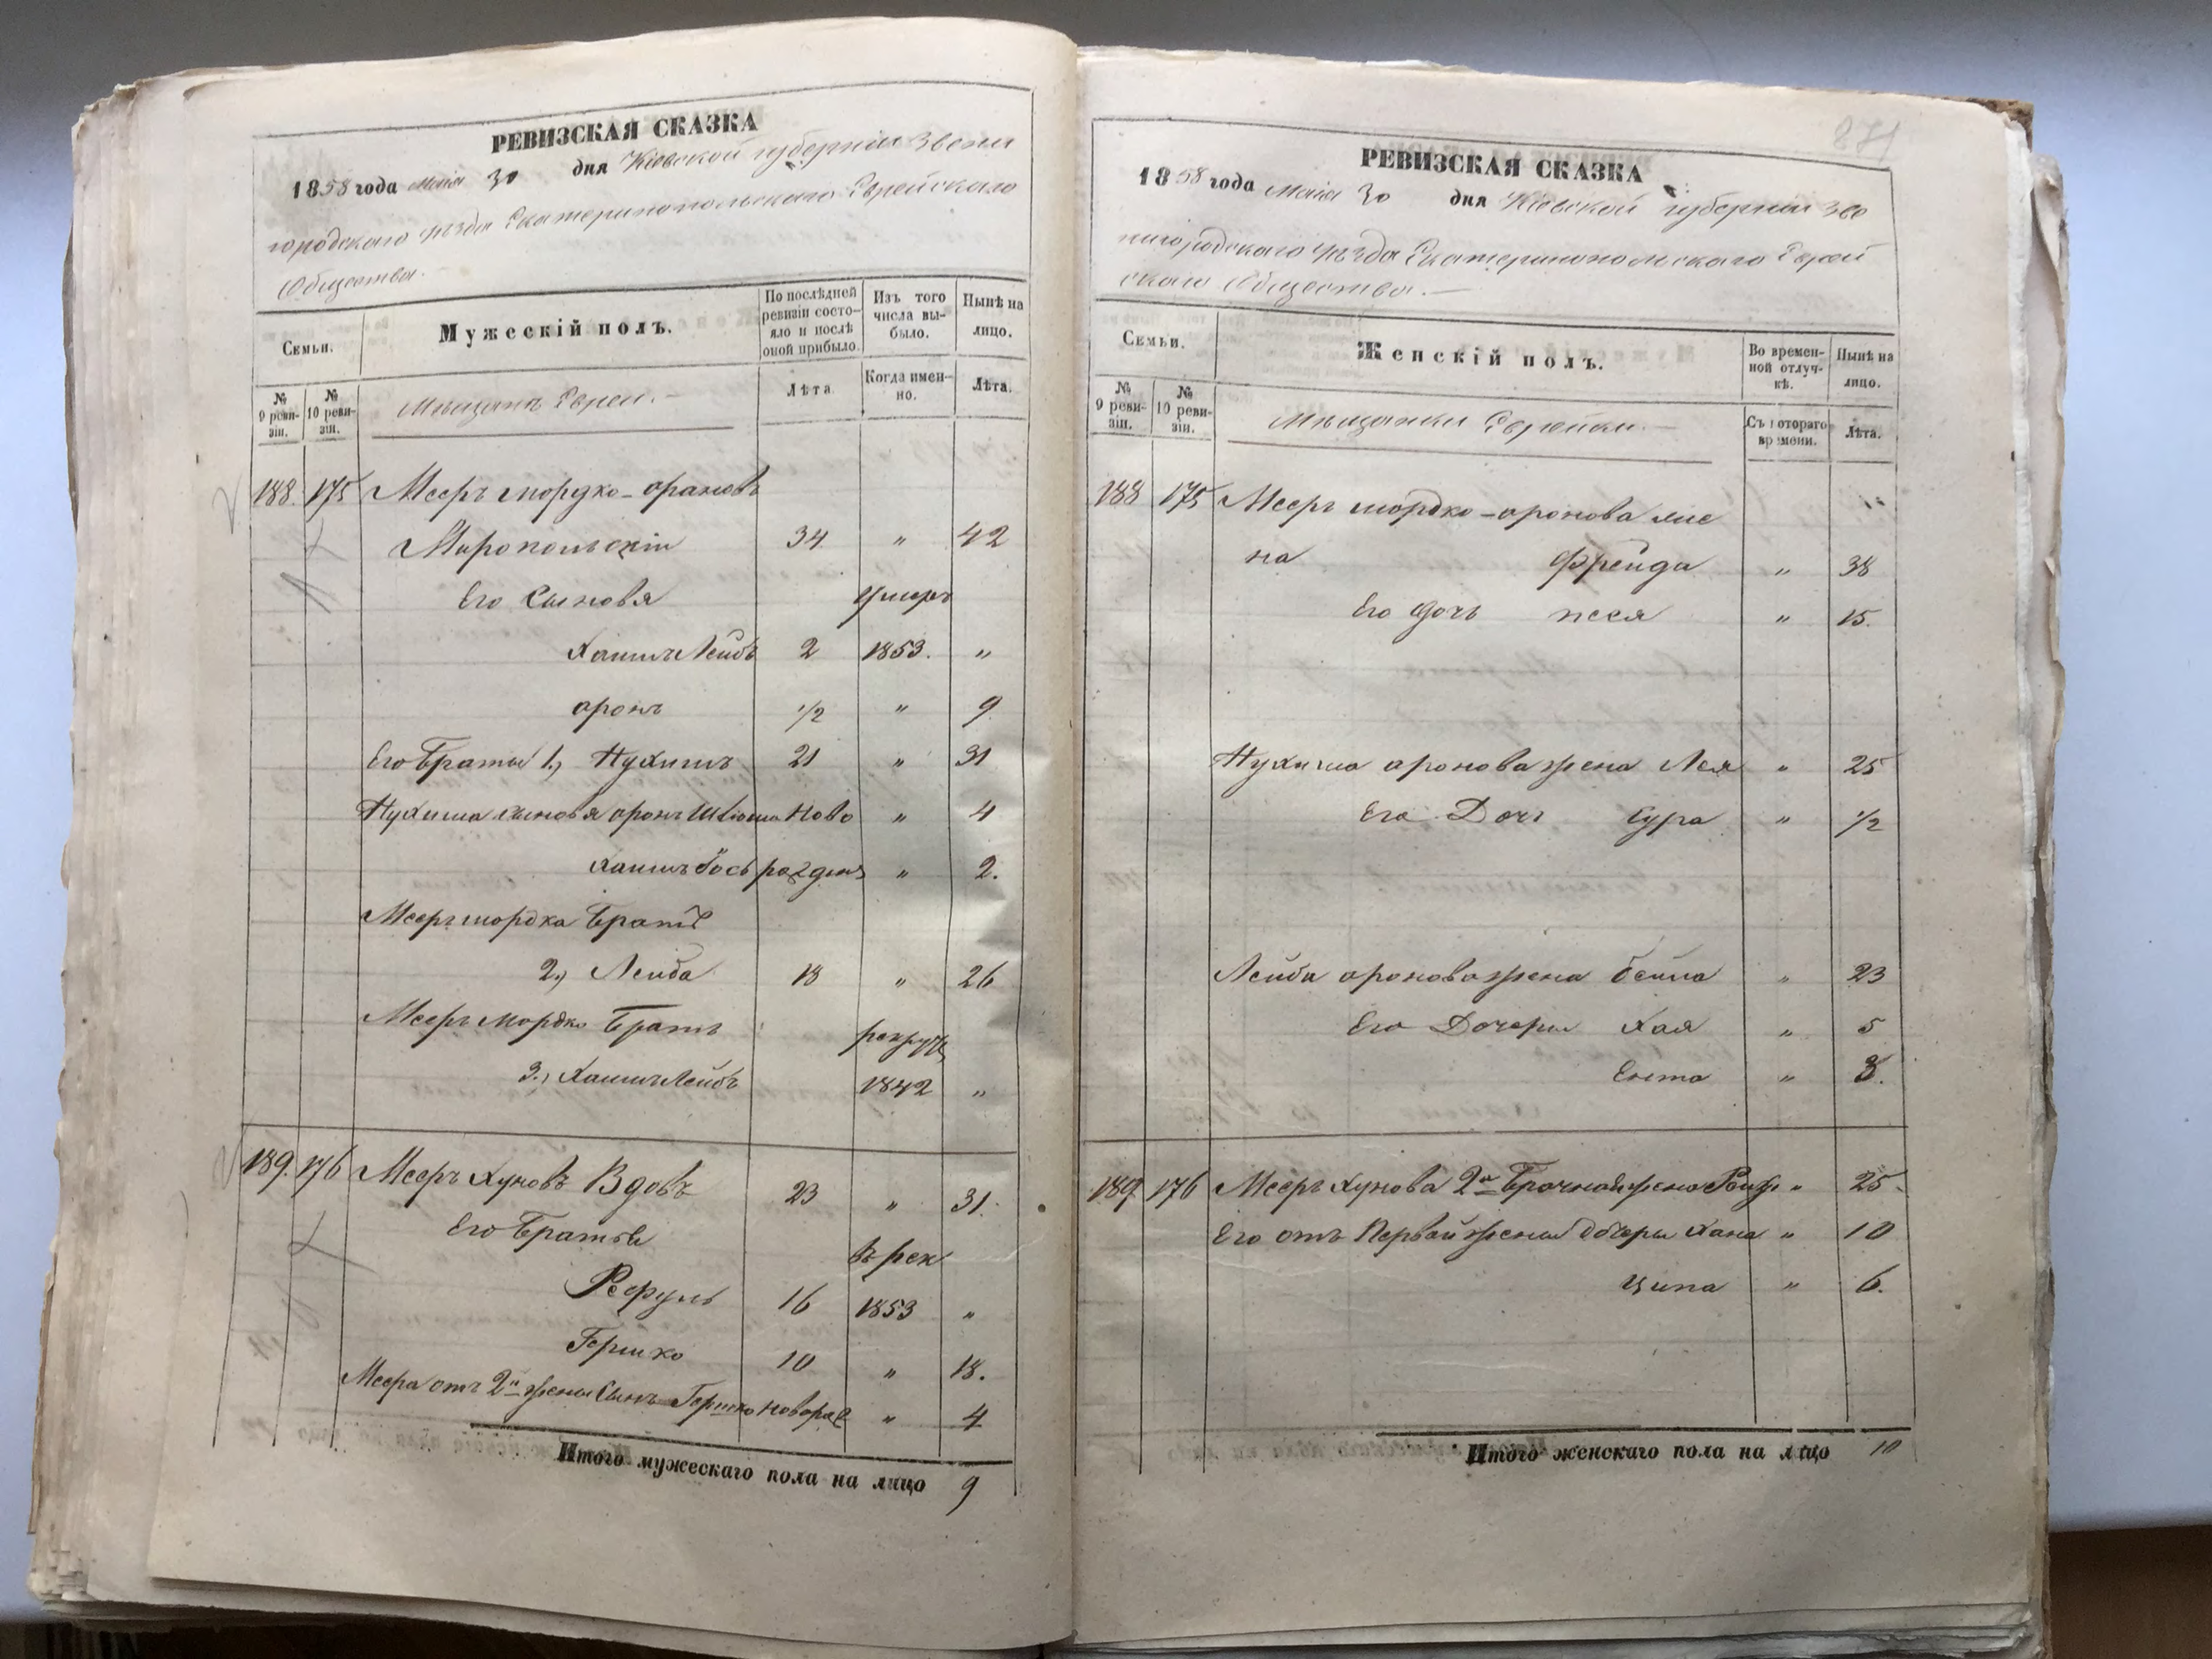 РЕВИЗСКАЯ СКАЗКА
1858 года Маія 30 дня Кіевской губерніи Звени
городскаго уѣзда Екатеринопольскаго Еврейскаго
Общества.
Семьи.
Мужескій полъ.
По послѣдней ревизіи состояло и послѣ оной прибыло.
Изъ того числа выбыло.
Нынѣ на лицо.
№ 9 ревизіи.
№ 10 ревизіи.
Мѣщане Евреи.
Лѣта
Когда именно.
Лѣта.
188. 175 Мееръ мордко-ароновъ
Миропольскій 34 " 42
Его Сыновя умеръ
Хаимъ Лейбъ 2 1853. "
аронъ 1/2 " 9
Его Братья 1., Нухимъ 21 " 31
Нухима сыновя аронъ Ново " 4
Хаимъ Іось рожден " 2.
Мееръ мордка Братъ
2., Лейба 18 " 26
Мееръ Мордко Братъ рекрут
3., Хаимъ Лейбъ 1842 "
189. 176 Мееръ Хуновъ Вдовъ 23 " 31.
Его Братья в рек
Рефуль 16 1853 "
Гершко 10 " 18.
Меера отъ 2й жены Сынъ Гершко новорож " 4
Итого мужескаго пола на лицо 9
271
РЕВИЗСКАЯ СКАЗКА
1858 года Маія 30 дня Кіевской губерніи Зве
нигородскаго уѣзда Екатеринопольскаго Еврей
скаго Общества.
Семьи.
Женскій полъ.
Во временной отлучкѣ.
Нынѣ на лицо.
№ 9 ревизіи.
№ 10 ревизіи.
Мѣщанки Еврейки.
Съ котораго времени.
Лѣта.
188 175 Меера мордко-аронова же
на Фрейда " 38
Его дочь песя " 15.
Нухима аронова жена Лея " 25
Его Дочь Сура " 1/2
Лейба аронова жена бейла " 23
Его Дочери Хая " 5
Ента " 3.
189 176 Меера Хунова 2я Брачная жена " 25
Его отъ Первой жены дочери Хана " 10
Ципа " 6.
Итого женскаго пола на лицо 10